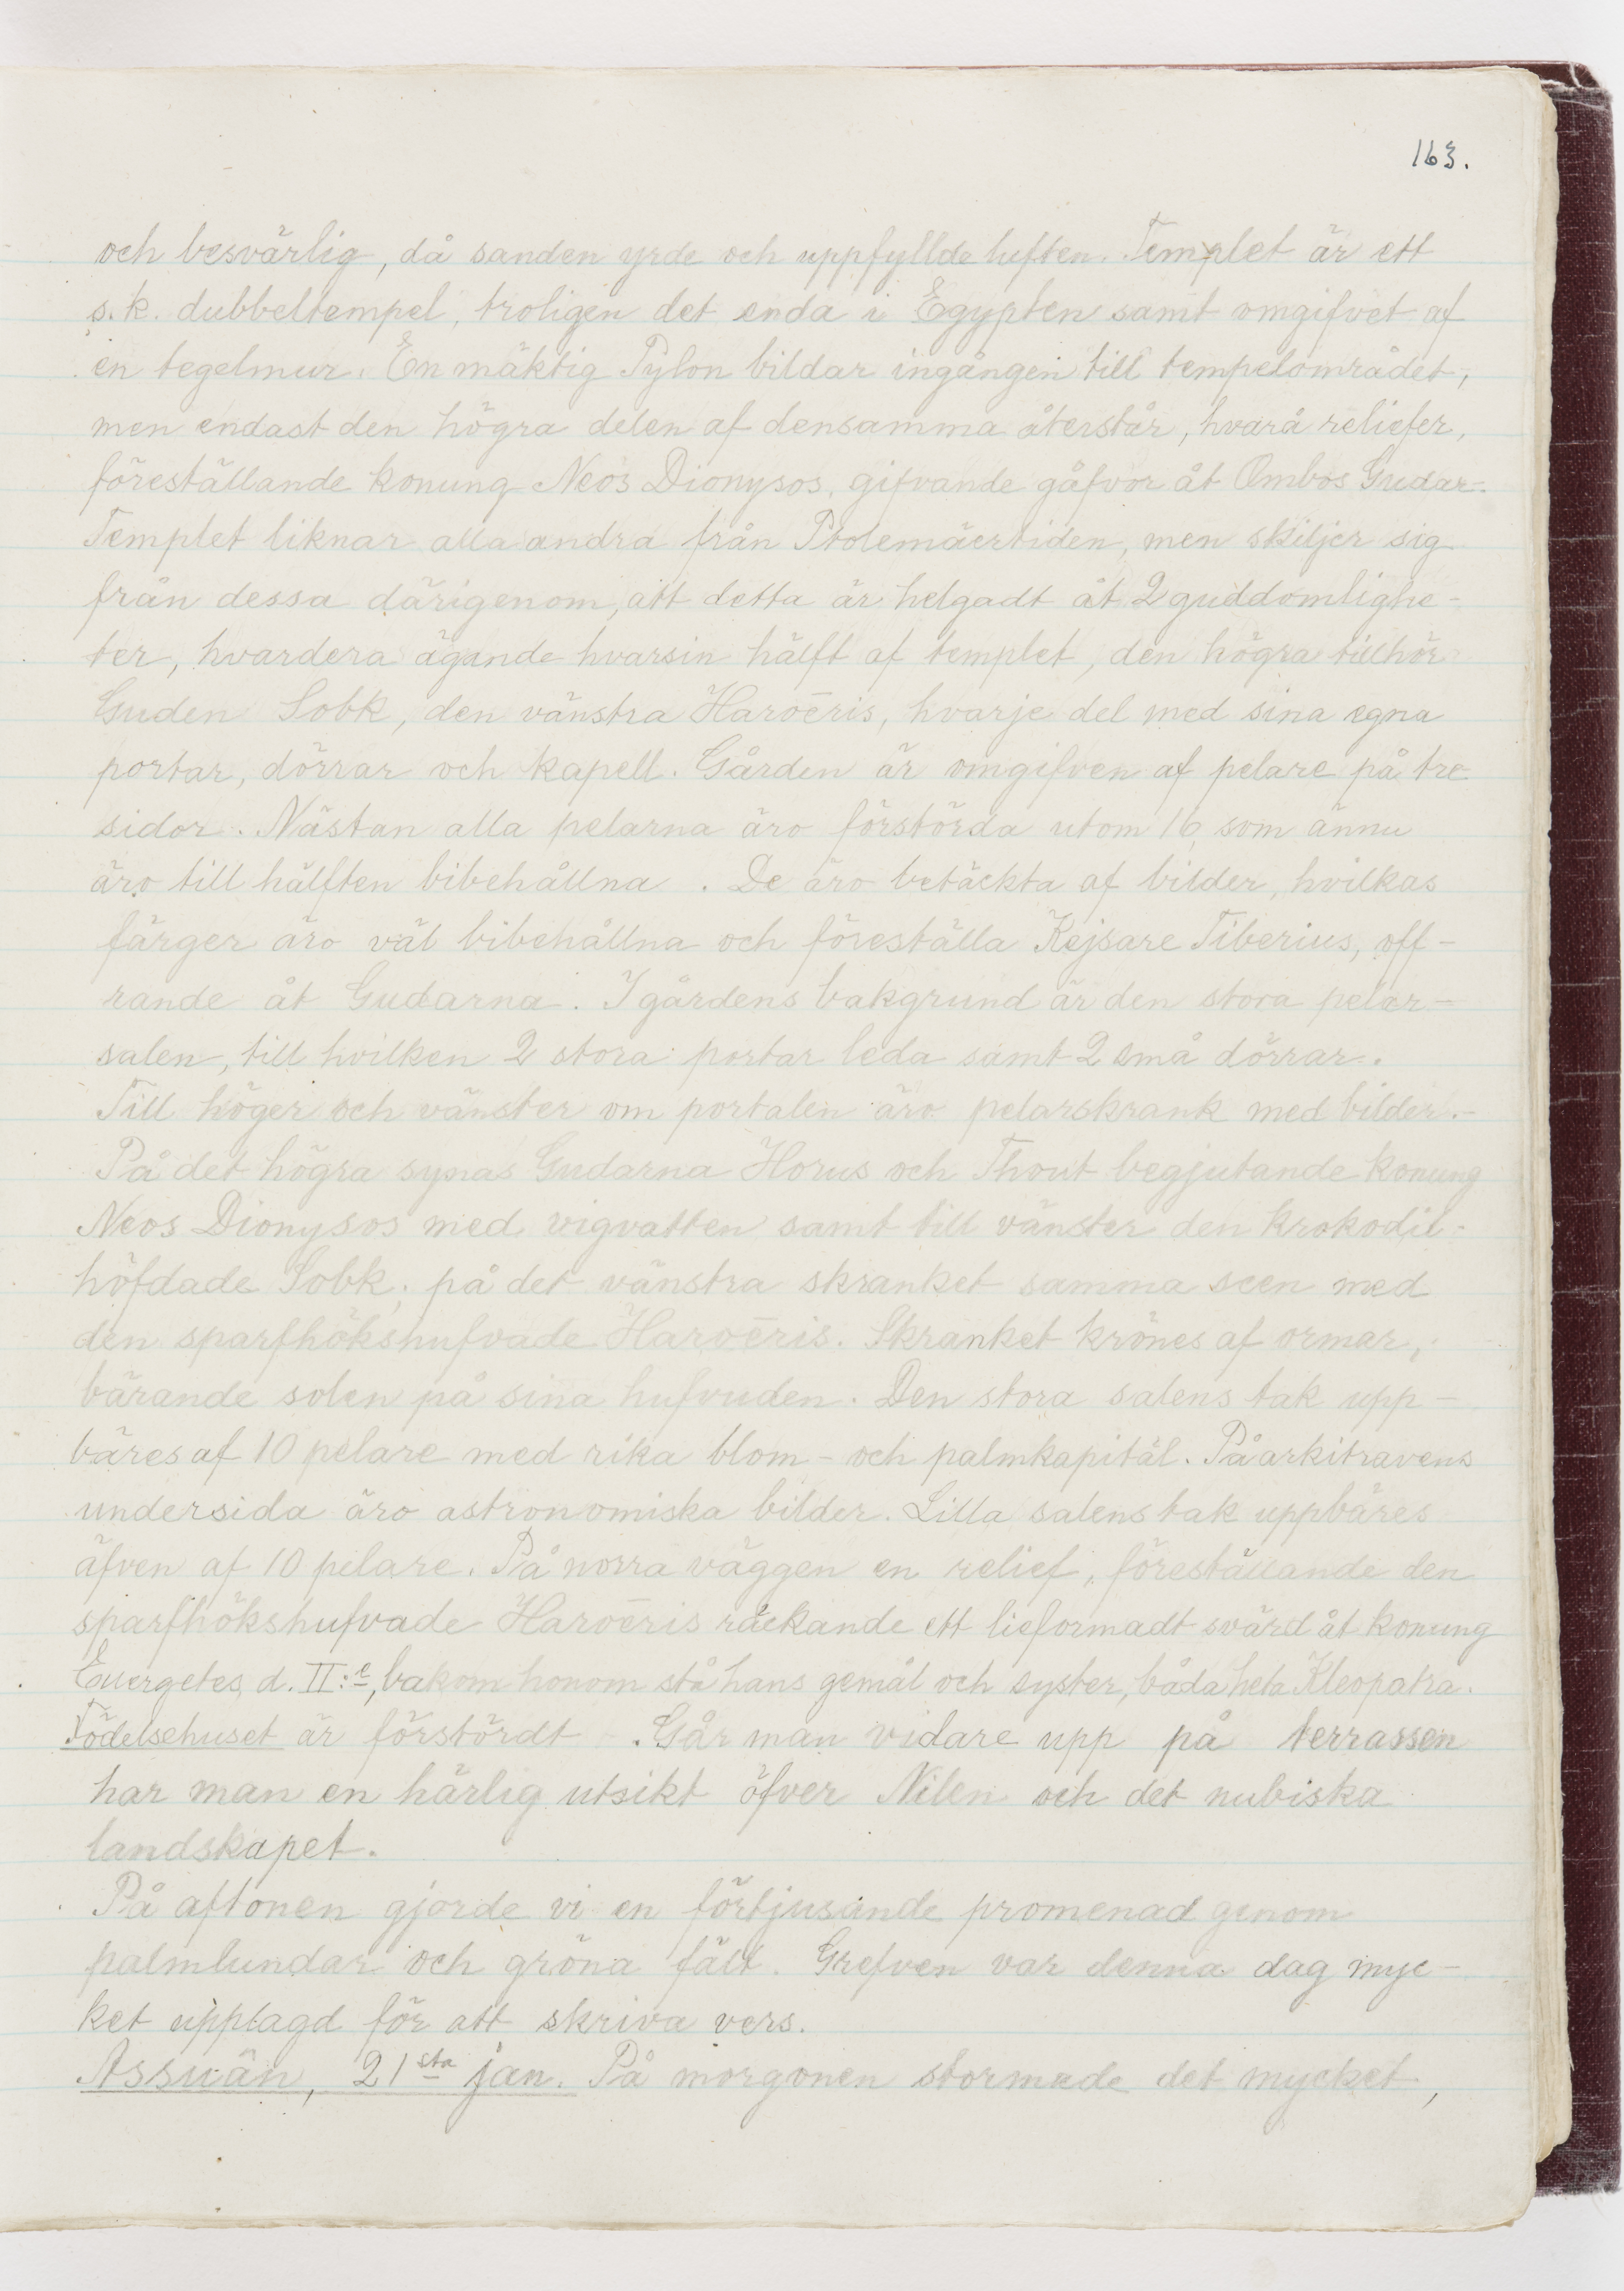 163.
och besvärlig, då sanden yrde och uppfyllde luften. Templet är ett
s.k. dubbeltempel, troligen det enda i Egypten samt omgifvet af
en tegelmur. En mäktig Pylon bildar ingången till tempelområdet,
men endast den högra delen af densamma återstår, hvarå reliefer,
föreställande konung Neos Dionysos, gifvande gåfvor åt Ombos Gudar.
Templet liknar alla andra från Ptolemäertiden, men skiljer sig
från dessa därigenom, att detta är helgadt åt 2 guddomlighe-
ter, hvardera ägande hvarsin hälft af templet, den högra tillhör
Guden Sobk, den vänstra Haroëris, hvarje del med sina egna
portar, dörrar och kapell. Gården är omgifven af pelare på tre
sidor. Nästan alla pelarna äro förstörda utom 16, som ännu
äro till hälften bibehållna. De äro betäckta af bilder, hvilkas
färger äro väl bibehållna och föreställa Kejsare Tiberius, off-
rande åt Gudarna. I gårdens bakgrund är den stora pelar-
salen, till hvilken 2 stora portar leda samt 2 små dörrar.
Till höger och vänster om portalen äro pelarskrank med bilder.-
På det högra synas Gudarna Horus och Thout begjutande konung
Neos Dionysos med vigvatten samt till vänster den krokodil-
höfdade Sobk; på det vänstra skranket samma scen med
den sparfhökshufvade Haroëris. Skranket krönes af ormar,
bärande solen på sina hufvuden. Den stora salens tak upp-
bäres af 10 pelare med rika blom- och palmkapitäl. På arkitravens
undersida äro astronomiska bilder. Lilla salens tak uppbäres
äfven af 10 pelare. På norra väggen en relief, föreställande den
sparfhökshufvade Haroëris räckande ett lieformadt svärd åt konung
Euergetes d. II:e, bakom honom stå hans gemål och syster, båda heta Kleopatra.
Födelsehuset är förstördt. Går man vidare upp på terrassen
har man en härlig utsikt öfver Nilen och det nubiska
landskapet.
På aftonen gjorde vi en förtjusande promenad genom
palmlundar och gröna fält. Grefven var denna dag myc-
ket upplagd för att skriva vers.
Assuân, 21sta jan. På morgonen stormade det mycket,